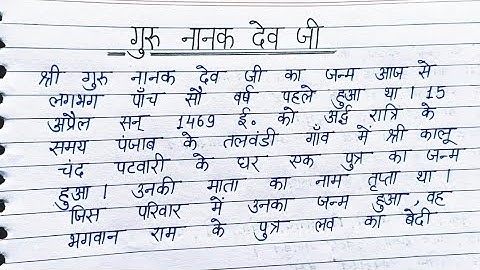 गुरु नानक देव जी
श्री गुरु नानक देव जी का जन्म आज से
लगभग पाँच सौ वर्ष पहले हुआ था। 15
अप्रैल सन् 1469 ई॰ को अर्द्ध रात्रि के
समय पंजाब के तलवंडी गाँव में श्री कालू
चंद पटवारी के घर एक पुत्र का जन्म
हुआ। उनकी माता का नाम तृप्ता था।
जिस परिवार में उनका जन्म हुआ, वह
भगवान राम के पुत्र लव का बेदी